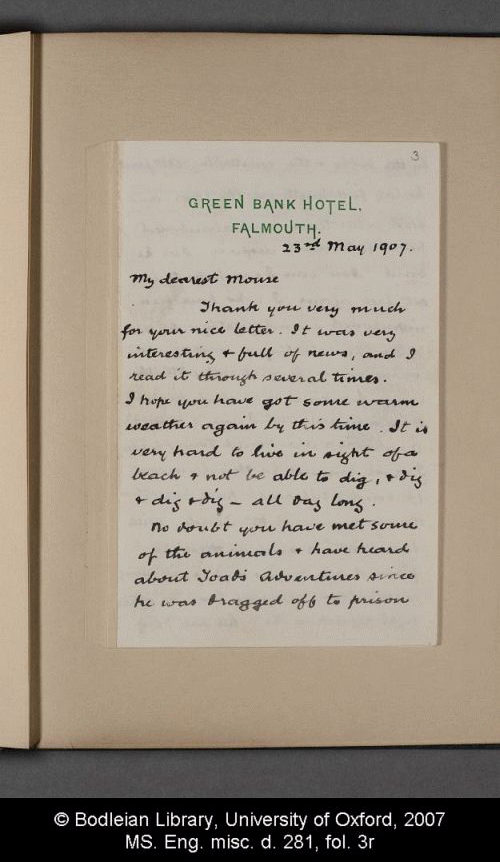 3
GREEN BANK HOTEL,
FALMOUTH.
23rd May 1907.
My dearest Mouse
Thank you very much
for your nice letter. It was very
interesting & full of news, and I
read it through several times.
I hope you have got some warm
weather again by this time. It is
very hard to live in sight of a
beach & not be able to dig, & dig
& dig & dig – all day long.
No doubt you have met some
of the animals & have heard
about Toad's Adventures since
he was dragged off to prison
© Bodleian Library, University of Oxford, 2007
MS. Eng. misc. d. 281, fol. 3r